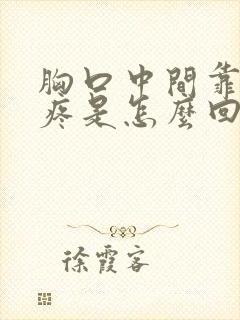 胸口中間靠
疼是怎麼回
徐霞客